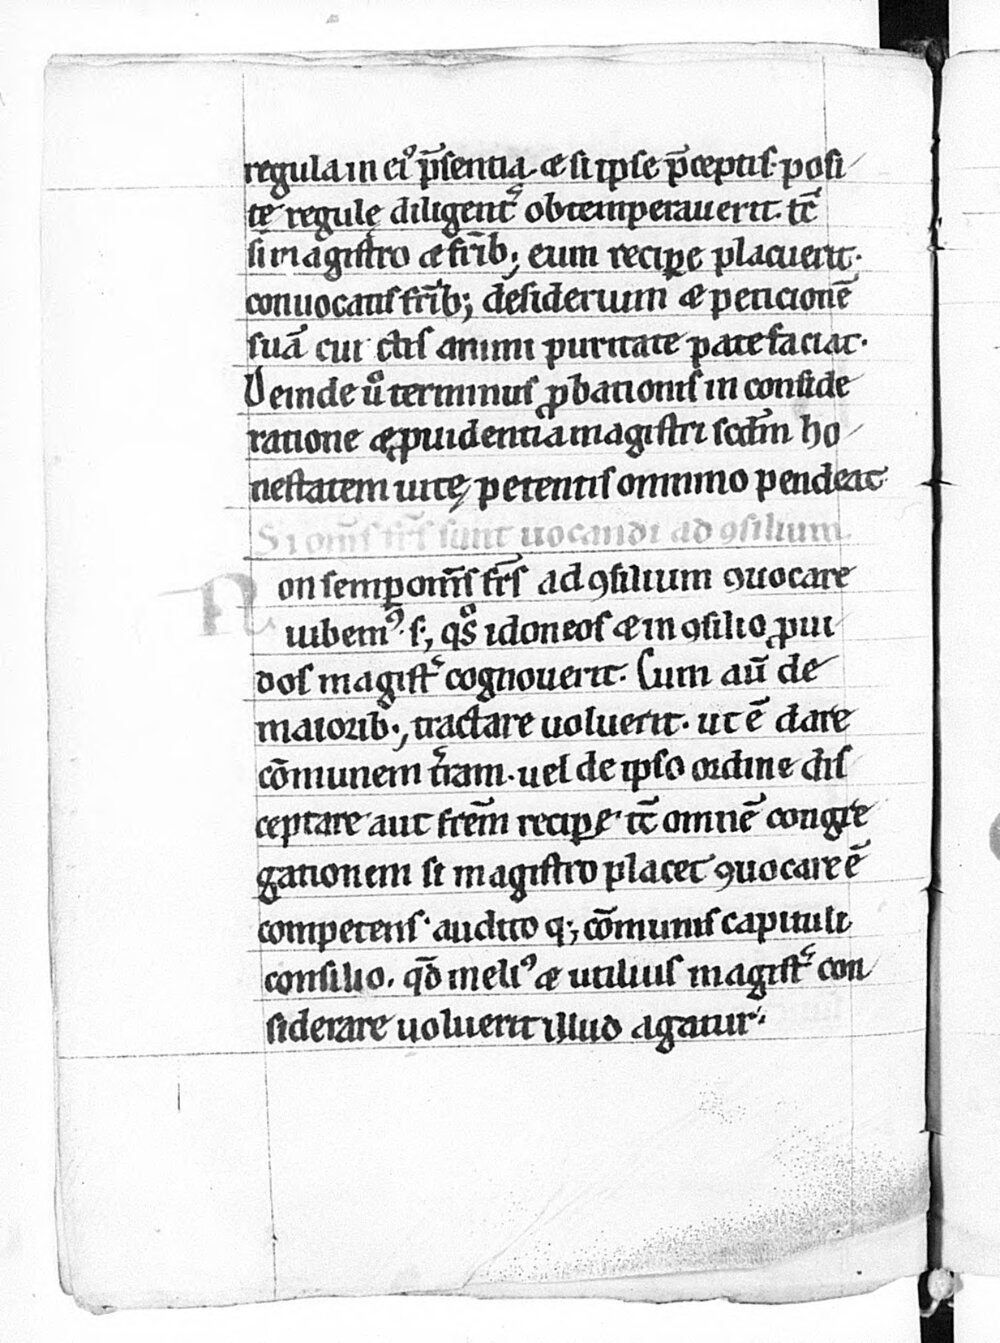 regula in ei᷒ p̄sentia. & si ipse p̄ceptis posi
te regule diligent͛ obtemperauerit. tc̄
si magistro & fr̄ib; eum recipe placuerit.
conuocatis fr̄ib; desideriuim & peticionē
suā cui ctis animi puritate patefaciat.
Deinde ů terminus ꝓbationis in conside
ratione & ꝓuidentia magistri scdm̄ ho
nestatem uite petentis omnino pendeat
Si om̄s fr̄s sunt uocandi ad ꝯsilium
Non semp om̄s fr̄s ad ꝯsilium ꝯuocare
iubem᷒. s; qͦs idoneos & in ꝯsilio ꝓui
dos magist͛ cognouerit. Cum aū de
maiorib; tractare uoluerit. ut ē dare
cōmunem t͛ram. uel de ipso ordine dis
ceptare aut frēm recipe. tc̄ omnē congre
gationem si magistro placet ꝯuocare ē
competens. audito q; cōmunis capituli
consilio. qd̄ meli᷒ & utilius magist͛ con
siderare uoluerit illud agatur.